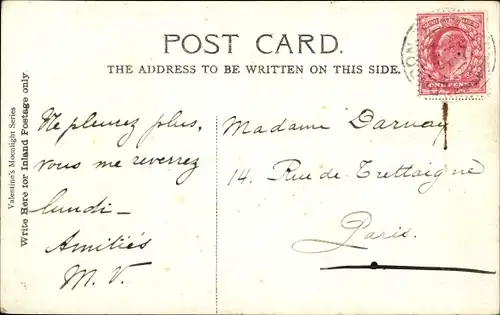 POST CARD.
THE ADDRESS TO BE WRITTEN ON THIS SIDE.
ONE PENNY
Valentine's Moonlight Series
Write Here for Inland Postage only
Ne pleurez plus,
vous me reverrez
lundi_
Amitiés
M. V.
Madame Darnay
14. Rue de Trettaigne
Paris.